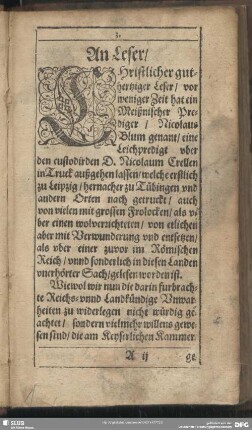 3.
An Leser/
CHristlicher gut-
hertziger Leser/ vor
weniger Zeit hat ein
Meißnischer Pre-
diger / Nicolaus
Blum genant/ eine
Leichpredigt vber
den custodirden D. Nicolaum Crellen
in Truck außgehen lassen/ welche erstlich
zu Leipzig/ hernacher zu Tübingen vnd
andern Orten nach getruckt/ auch
von vielen mit grossen Frolocken/ als v-
ber einen wolverrichteten/ von etlichen
aber mit Verwunderung vnd entsetzen/
als vber einer zuvor im Römischen
Reich/ vnnd sonderlich in diesen Landen
vnerhörter Sach/ gelesen worden ist.
Wiewol wir nun die darin fürbrach-
te Reichs- vnnd Landkündige Vnwar-
heiten zu widerlegen nicht würdig ge-
achtet/ sondern vielmehr willens gewe-
sen sind/ die am Keyserlichen Kammer-
A ij
ge-